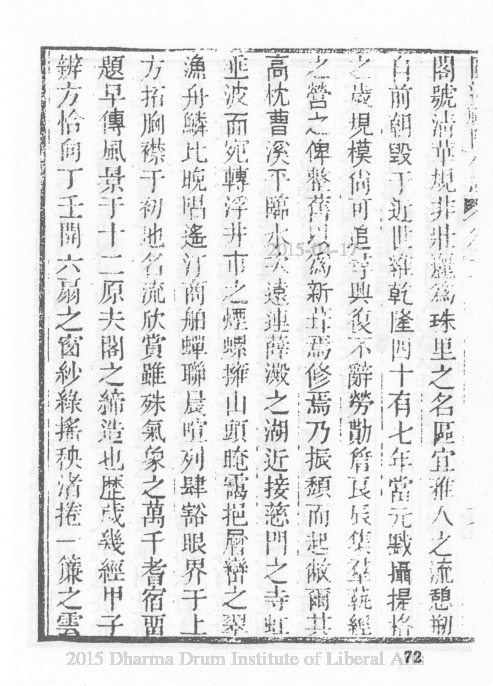 閣號清華規非壯麗為珠里之名區宜雅人之流憩剏
自前朝毀于近世維乾隆四十有七年當元黓攝提格
之歲規模尙可追尋興復不辭勞勩詹良辰集羣蓺經
之營之俾整舊以為新葺焉修焉乃振頹而起敝爾其
高枕曹溪平臨水天遠連薛澱之湖近接慈門之寺虹
垂波面宛轉浮井巿之煙螺擁山頭晻靄挹層巒之翠
漁舟鱗比晚唱遙汀商舶蟬聯晨喧列肆豁眼界于上
方拓胸襟于初地名流欣賞雖殊氣象之萬千耆宿畱
題早傳風景于十二原夫閣之締造也歷歲幾經甲子
辨方恰向丁壬開六扇之窗紗綠搖秧渚捲一簾之雲
72
2015-03-17
2015 Dharma Drum Institute of Liberal Arts